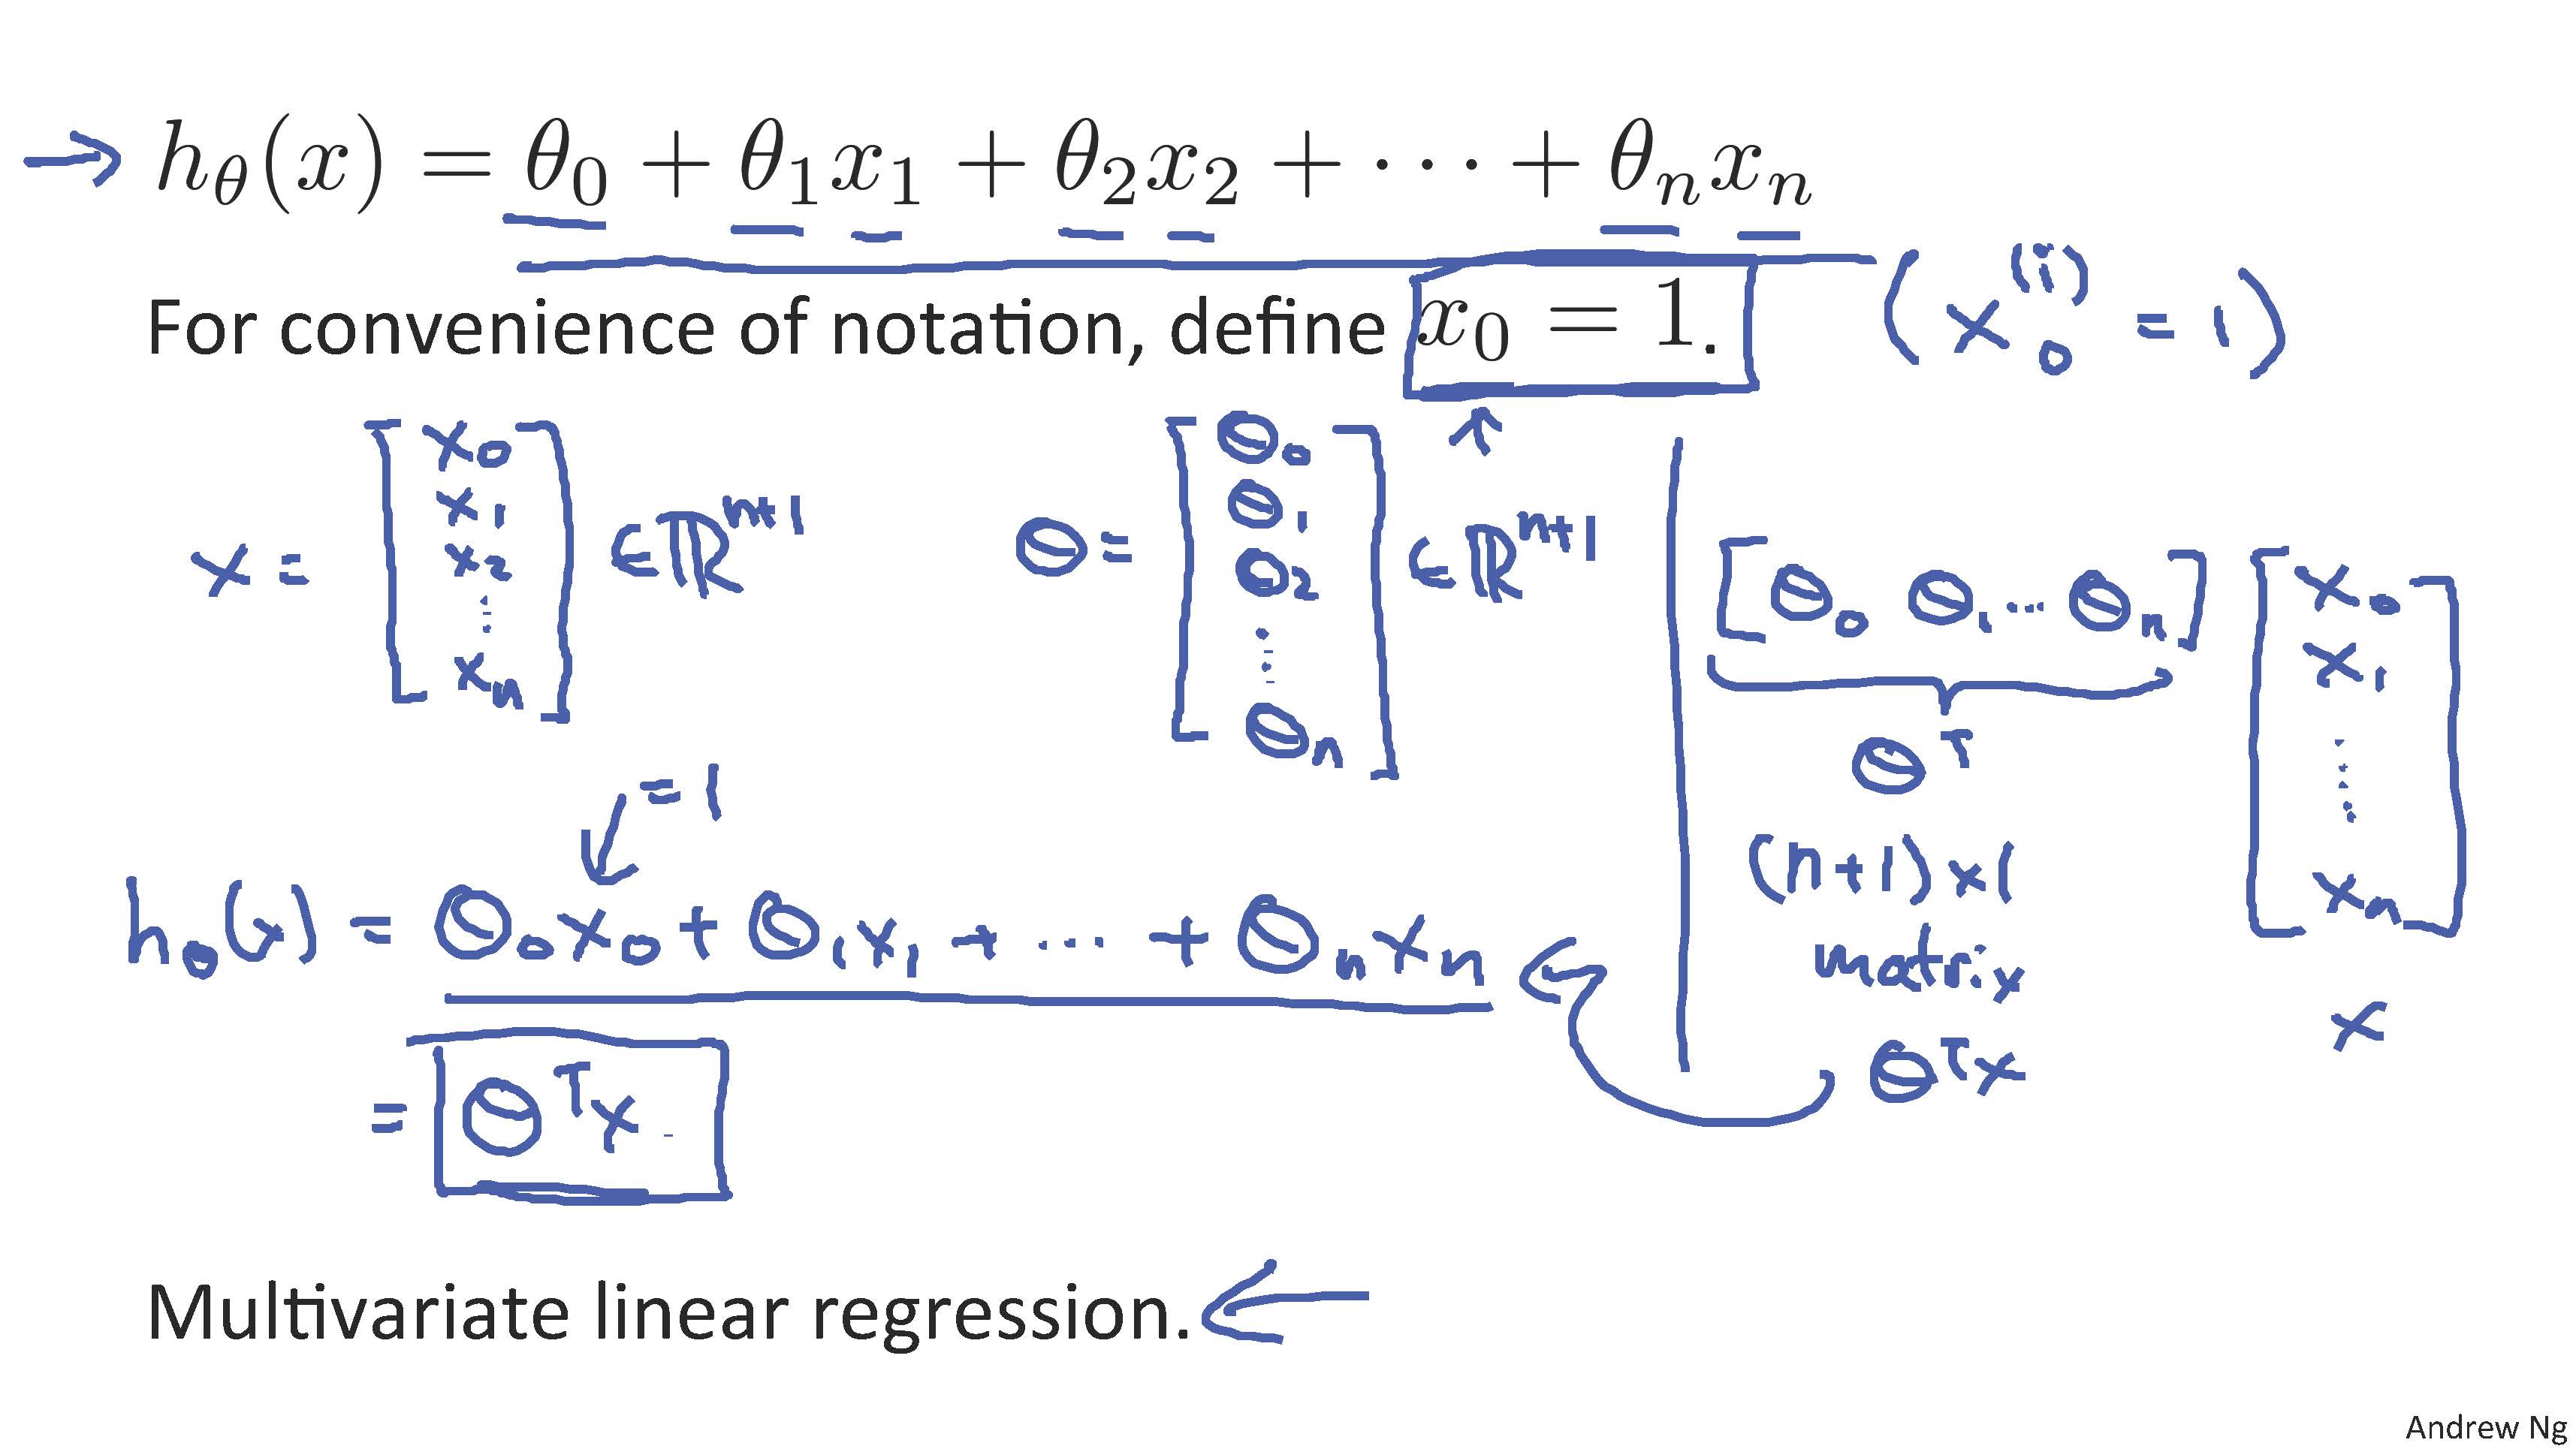 → hθ(x) = θ₀ + θ₁x₁ + θ₂x₂ + ··· + θₙxₙ
For convenience of notation, define x₀ = 1. (x₀⁽ⁱ⁾ = 1)
x = [x₀ x₁ x₂ ⋮ xₙ] ∈ ℝⁿ⁺¹
θ = [θ₀ θ₁ θ₂ ⋮ θₙ] ∈ ℝⁿ⁺¹
= 1
hθ(x) = θ₀x₀ + θ₁x₁ + ··· + θₙxₙ
= θᵀx
[θ₀ θ₁ ... θₙ] [x₀ x₁ ⋮ xₙ]
θᵀ
(n+1) x 1
matrix
x
θᵀx
Multivariate linear regression. ←
Andrew Ng